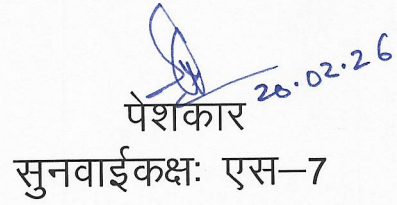 20.02.26
पेशकार
सुनवाईकक्षः एस–7